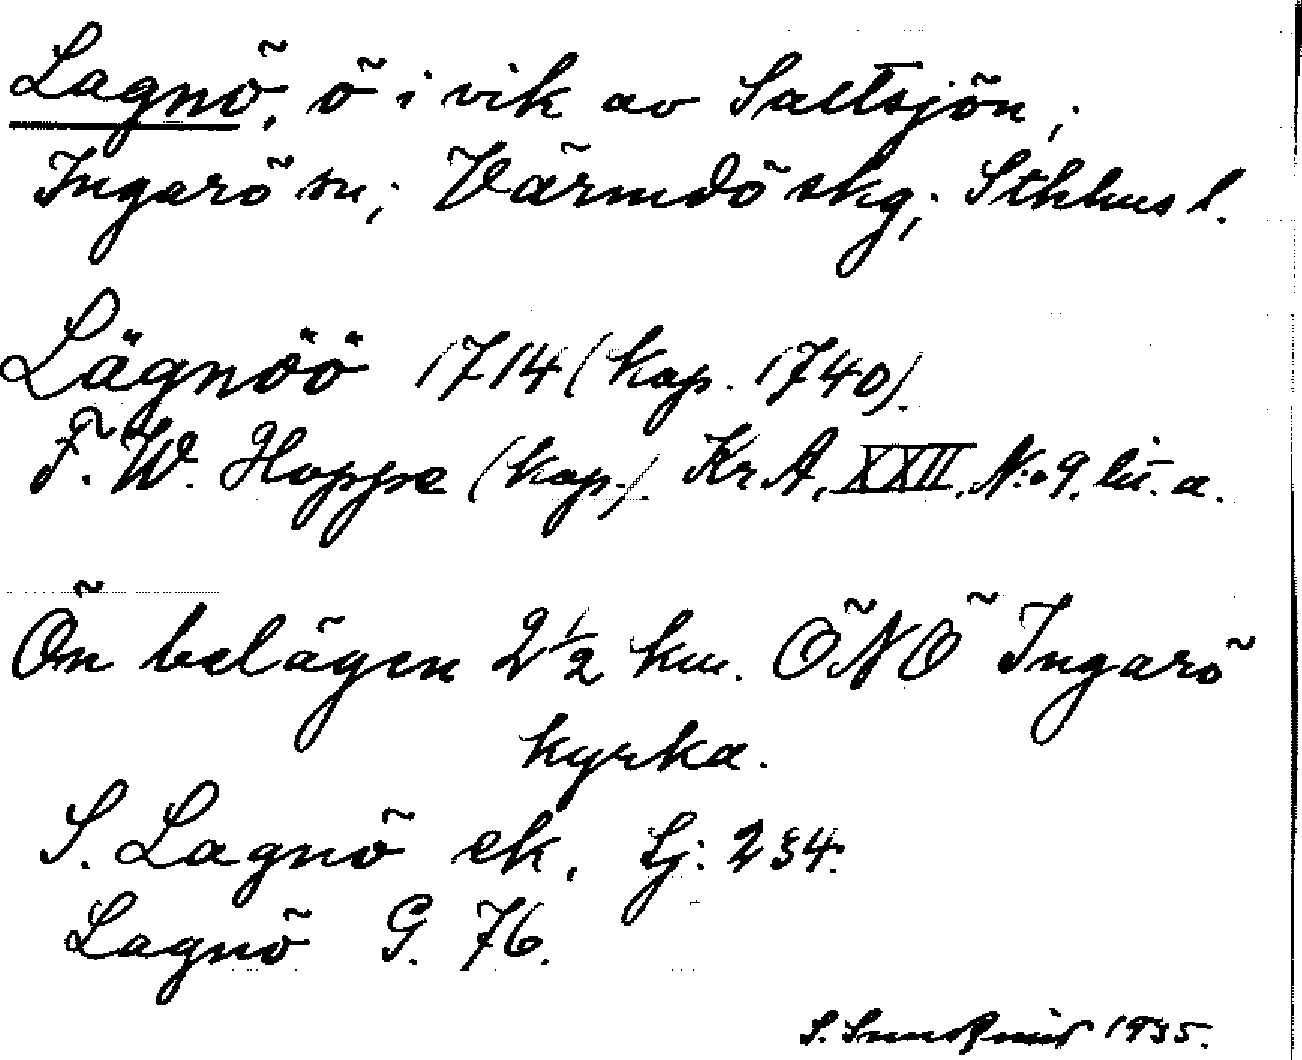 Lagnö, ö i vik av Saltsjön,
Ingarö sn; Värmdö skg; Sthlms l.
Lägnöö 1714 (kop. 1740).
F. W. Hoppe (kop.). Kr. A. XXII. N:o 9. lit. a.
Ön belägen 2 1/2 km. ÖNÖ Ingarö
kyrka.
S. Lagnö ek. Lj: 234.
Lagnö G. 76.
S. 1935.